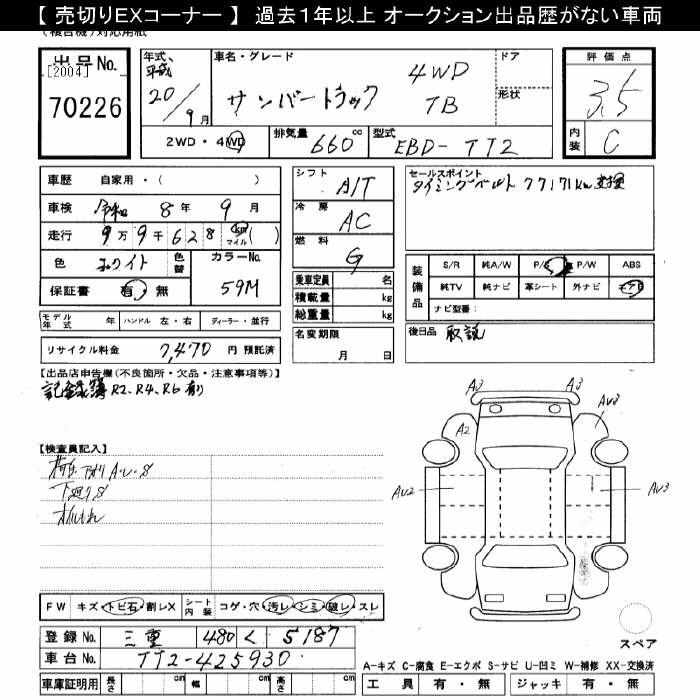 【 売切りEXコーナー 】 過去１年以上 オークション出品歴がない車両
出品 No. [2004] 70226
年式 平成 20/9月
車名・グレード サンバートラック 4WD TB
ドア
形状
評価点 3.5
内装 C
2WD・4WD
排気量 660cc
型式 EBD-TT2
車歴 自家用・( )
車検 令和 8年 9月
走行 9万9千628 km マイル ( )
色 ホワイト
色替
カラーNo. 59M
保証書 有・無
モデル年式 年
ハンドル 左・右
ディーラー・並行
リサイクル料金 7,470 円 預託済
シフト A/T
冷房 AC
燃料 G
乗車定員 名
積載量 kg
総重量 kg
名変期限 月 日
セールスポイント
タイミングベルト 77171km
装備品
S/R 純A/W P/S P/W ABS
純TV 純ナビ 革シート 外ナビ エアB
ナビ型番：
後日品 取説
【出品店申告欄(不良箇所・欠品・注意事項等)】
記録簿 R2、R4、R6 有り
【検査員記入】
荷台、アオリ A・U・S
下廻りS
A3 A3
A2 AU3
AU2 AU3
FW キズ・トビ石・割レX
シート内装 コゲ・穴・汚レ・シミ・破レ・スレ
登録 No. 三重 480 く 5187
車台 No. TT2-425930
車庫証明用 長さ cm 幅 cm 高さ cm
スペア
A-キズ C-腐食 E-エクボ S-サビ U-凹ミ W-補修 XX-交換済
工具 有・無 ジャッキ 有・無